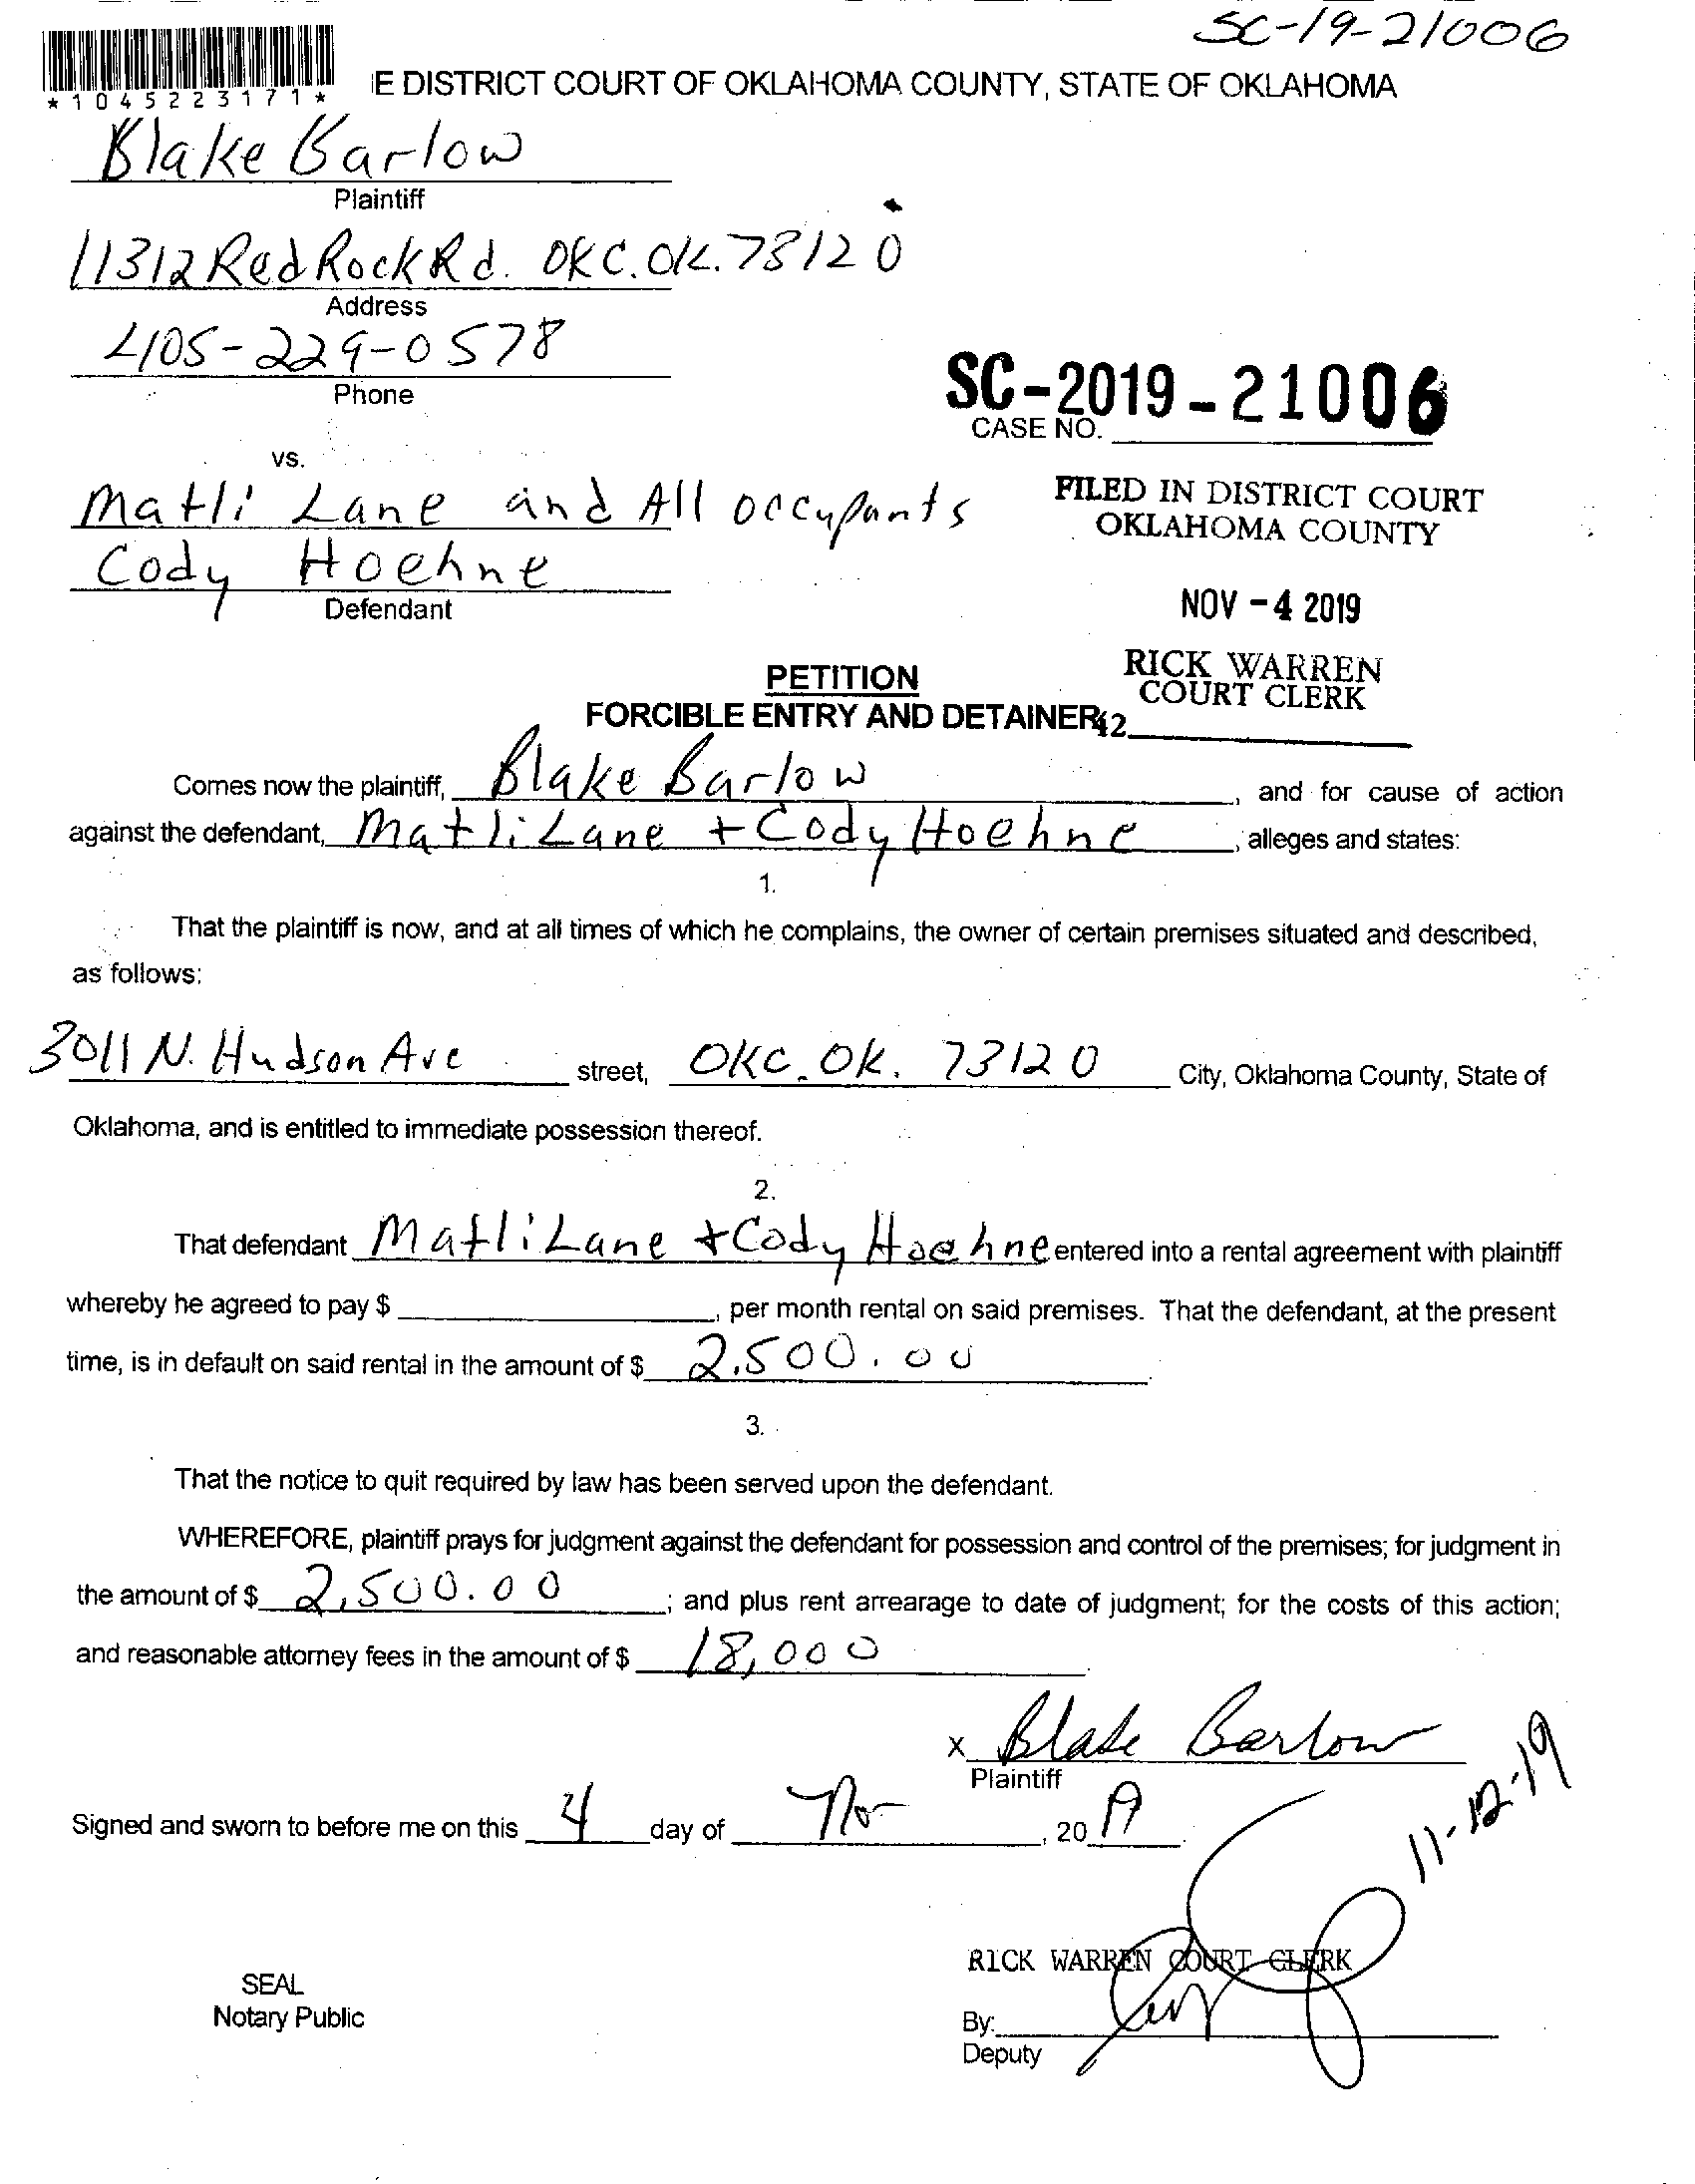 SC-19-21006
*1045223171*
E DISTRICT COURT OF OKLAHOMA COUNTY, STATE OF OKLAHOMA
Blake Barlow
Plaintiff
11312 Red Rock Rd. OKC. OK. 73120
Address
405-229-0578
Phone
SC-2019-21006
CASE NO.
vs.
Matli Lane and All occupants
Cody Hoehne
Defendant
FILED IN DISTRICT COURT
OKLAHOMA COUNTY
NOV -4 2019
RICK WARREN
COURT CLERK
42
PETITION
FORCIBLE ENTRY AND DETAINER
Comes now the plaintiff, Blake Barlow, and for cause of action
against the defendant, Matli Lane + Cody Hoehne, alleges and states:
1.
That the plaintiff is now, and at all times of which he complains, the owner of certain premises situated and described,
as follows:
3011 N. Hudson Ave street, OKC. OK. 73120 City, Oklahoma County, State of
Oklahoma, and is entitled to immediate possession thereof.
2.
That defendant Matli Lane + Cody Hoehne entered into a rental agreement with plaintiff
whereby he agreed to pay $ , per month rental on said premises. That the defendant, at the present
time, is in default on said rental in the amount of $ 2,500.00.
3.
That the notice to quit required by law has been served upon the defendant.
WHEREFORE, plaintiff prays for judgment against the defendant for possession and control of the premises; for judgment in
the amount of $ 2,500.00; and plus rent arrearage to date of judgment; for the costs of this action;
and reasonable attorney fees in the amount of $ 18,000.
x Blake Barlow
Plaintiff
Signed and sworn to before me on this 4 day of Nov, 2019.
11-12-19
RICK WARREN COURT CLERK
SEAL
Notary Public
By:
Deputy